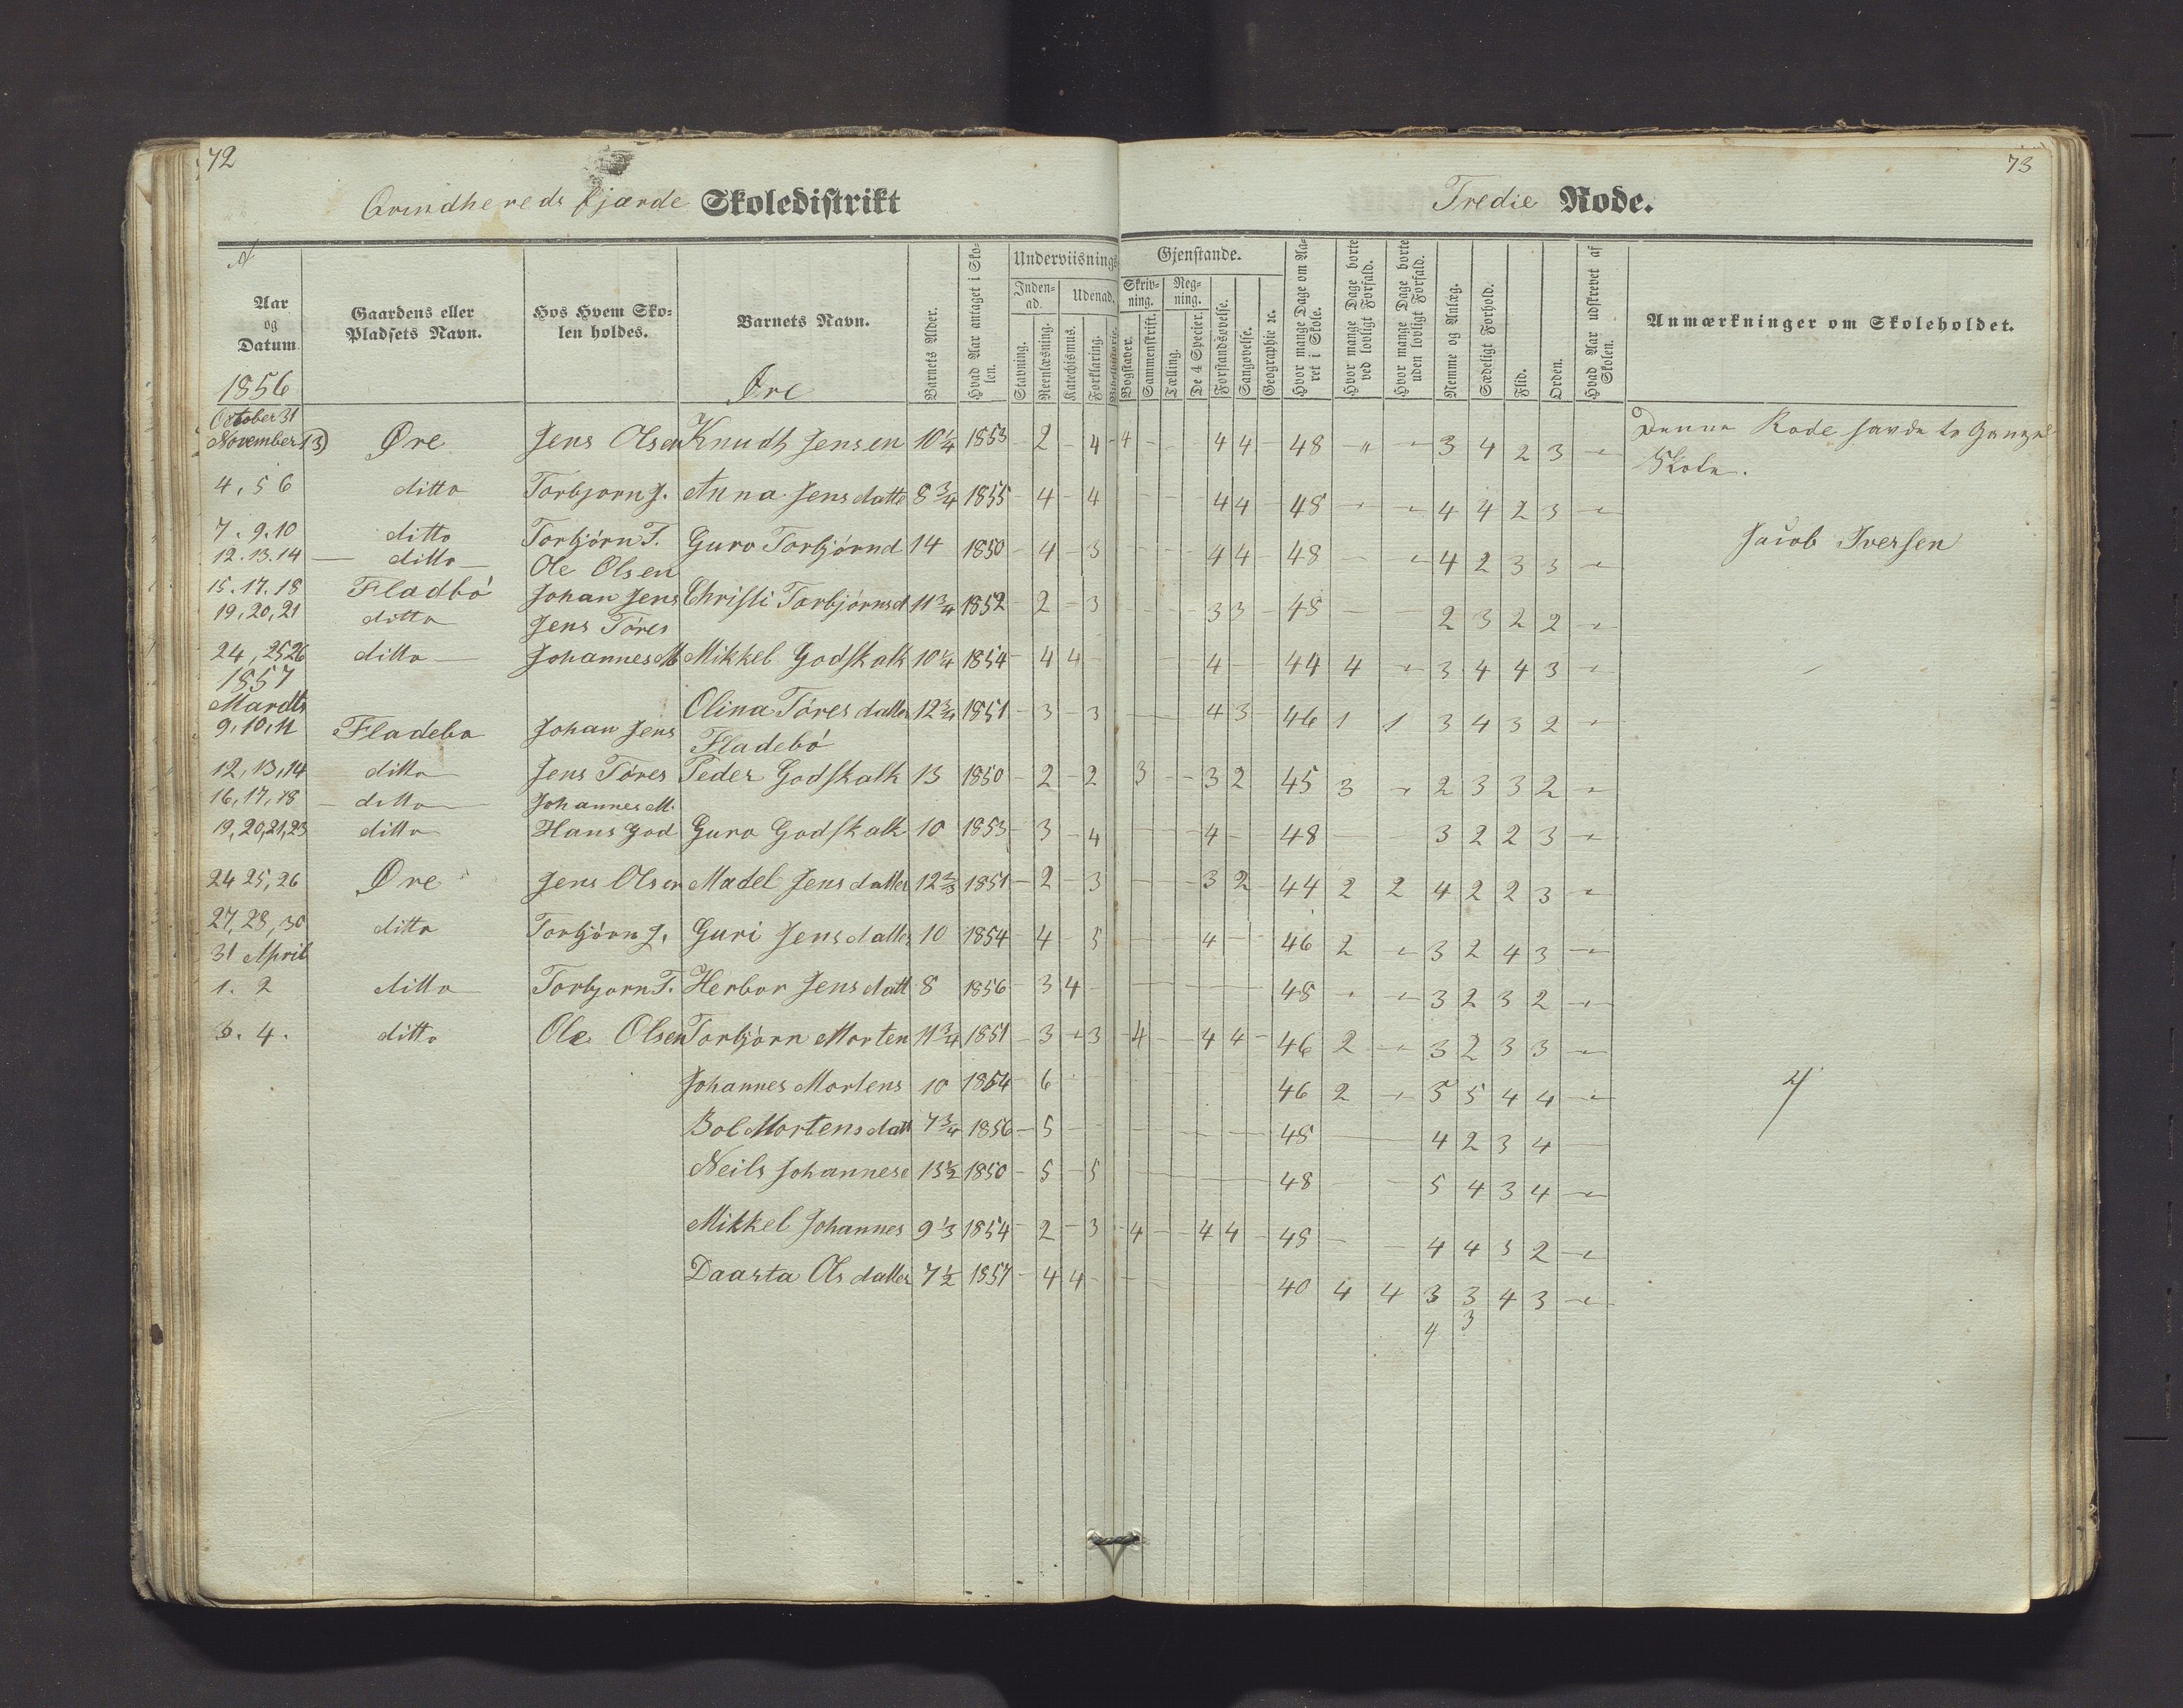 72
73
Grindhereds fjærde Skoledistrikt
Tredie Rode.
Aar og Datum.
Gaardens eller Pladsets Navn.
Hos Hvem Skolen holdes.
Barnets Navn.
Barnets Alder.
Hvad Aar antaget i Skolen.
Underviisnings-
Gjenstande.
Inden-ad.
Udenad.
Stavning.
Reenlæsning.
Katechismus.
Forklaring.
Bibelhistorie.
Skriv-ning.
Reg-ning.
Bogstaver.
Sammenskrift.
Tælling.
De 4 Species.
Forstandsøvelse.
Sangøvelse.
Geographie &c.
Hvor mange Dage om Aaret i Skole.
Hvor mange Dage borte ved lovligt Forfald.
Hvor mange Dage borte uden lovligt Forfald.
Nemme og Anlæg.
Sædeligt Forhold.
Flid.
Orden.
Hvad Aar udskrevet af Skolen.
Anmærkninger om Skoleholdet.
1856 Øre
October 31
November 1 3) Øre Jens Olsen Knudh Jensen 10¼ 1853 - 2 - 4 - 4 - - - 4 4 - 48 " - 3 4 2 3 -
Denne Rode havde to Gange
Skole.
4, 5 6 ditto Torbjorn J. Anna Jensdatte 8¾ 1855 - 4 - 4 - - - - 4 4 - 48 - - 4 4 2 3 -
7. 9. 10 ditto Torbjörn T. Guro Torbjörnd 14 1850 - 4 - 3 - - - 4 4 - 48 - - 4 2 3 3 -
Jacob Iversen
12. 13. 14 - ditto - Ole Olsen
15. 17. 18 Fladbó Johan Jens Christi Torbjórnsd 11¾ 1852 - 2 - 3 - - - 3 3 - 48 - 2 3 2 2 -
19, 20, 21 ditto Jens Töres
24, 25 26 ditto - Johannes M Mikkel Godskalk 10¼ 1854 - 4 4 - - - 4 - 44 4 - 3 4 4 3 -
1857
Mardts Olina Töresdatter 12¾ 1851 - 3 - 3 - - - 4 3 - 46 1 1 3 4 3 2 -
9, 10, 11 Fladebo Johan Jens Fladebó
12, 13, 14 ditto Jens Töres Peder Godskalk 13 1850 - 2 - 2 3 - - 3 2 45 3 - 2 3 3 2 -
16, 17, 18 - ditto - Johannes M.
19, 20, 21, 23 ditto Hans God Guro Godskalk 10 1853 - 3 - 4 - - - 4 - 48 - - 3 2 2 3 -
24 25, 26 Øre Jens Olsen Madel Jensdatter 12⅔ 1851 - 2 - 3 - - - 3 2 - 44 2 2 4 2 2 3 -
27, 28, 30 ditto Torbjörn J. Guri Jensdatter 10 1854 - 4 - 5 - - - 4 - - 46 2 - 3 2 4 3 -
31 April
1. 2 ditto Torbjorn T. Herbor Jensdatt 8 1856 - 3 4 - - - - - 48 - - 3 2 3 2 -
3. 4. ditto Ole Olsen Torbjörn Morten 11¾ 1851 - 3 - 3 - 4 - - 4 4 - 46 2 - 3 2 3 3 -
Johannes Mortens 10 1854 - 6 - - - - 46 2 - 5 5 4 4 -
4
Bol Mortensdatt 7¾ 1856 - 5 - - - - 48 - - 4 2 3 4 -
Neils Johannese 13½ 1850 - 5 - 5 - - - - 48 - - 5 4 3 4 -
Mikkel Johannes 9⅓ 1854 - 2 - 3 - 4 - - 4 4 - 48 - - 4 4 3 2 -
Daarta Olsdatter 7½ 1857 - 4 4 - - - - - 40 4 4 3 3 4 3 -
4 3